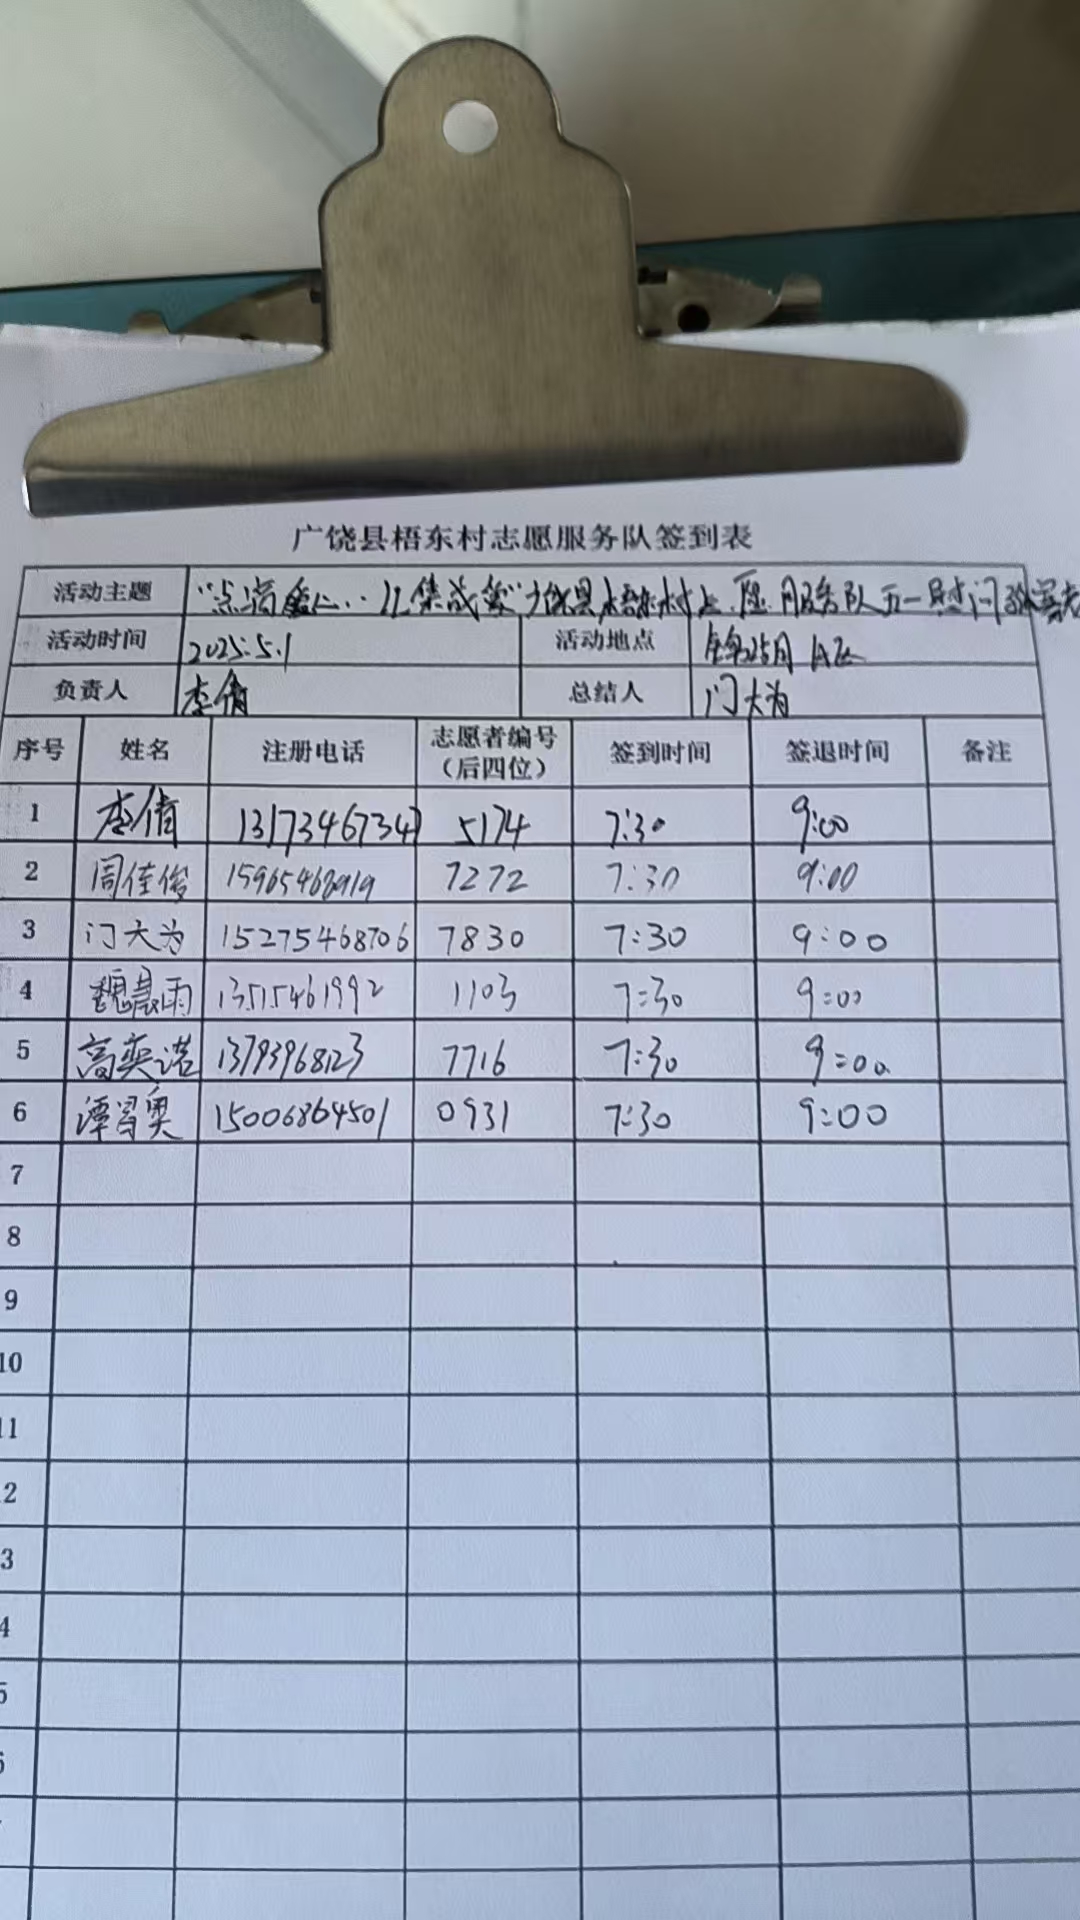 广饶县梧东村志愿服务队签到表
活动主题 "点滴 集成 广饶县梧东村 愿服务队五一慰问
活动时间 2025.5.1 活动地点 A区
负责人 李倩 总结人 门大为
序号 姓名 注册电话 志愿者编号（后四位） 签到时间 签退时间 备注
1 李倩 13173467347 5174 7:30 9:00
2 周佳俊 15965468919 7272 7:30 9:00
3 门大为 15275468706 7830 7:30 9:00
4 魏晨雨 13515461992 1103 7:30 9:00
5 高奕诺 13793968123 7716 7:30 9:00
6 谭 奥 15006864501 0931 7:30 9:00
7
8
9
10
11
2
3
4
5